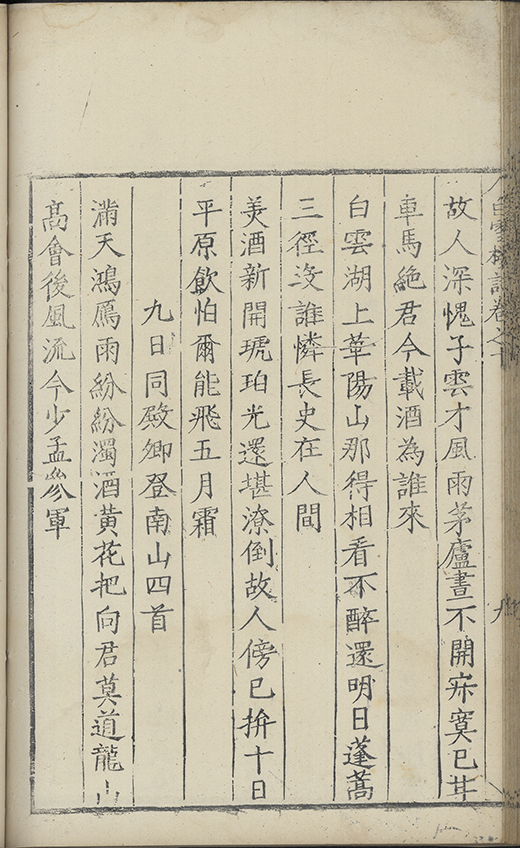 白雪樓詩卷之
九
故人深愧子雲才風雨茅廬晝不開寂寞已甘
車馬絕君今載酒為誰來
白雲湖上華陽山那得相看不醉還明日蓬蒿
三徑沒誰憐長史在人間
美酒新開琥珀光還堪潦倒故人傍已拚十日
平原飲怕爾能飛五月霜
九日同殿卿登南山四首
滿天鴻鴈雨紛紛濁酒黃花把向君莫道龍山
高會後風流今少孟參軍